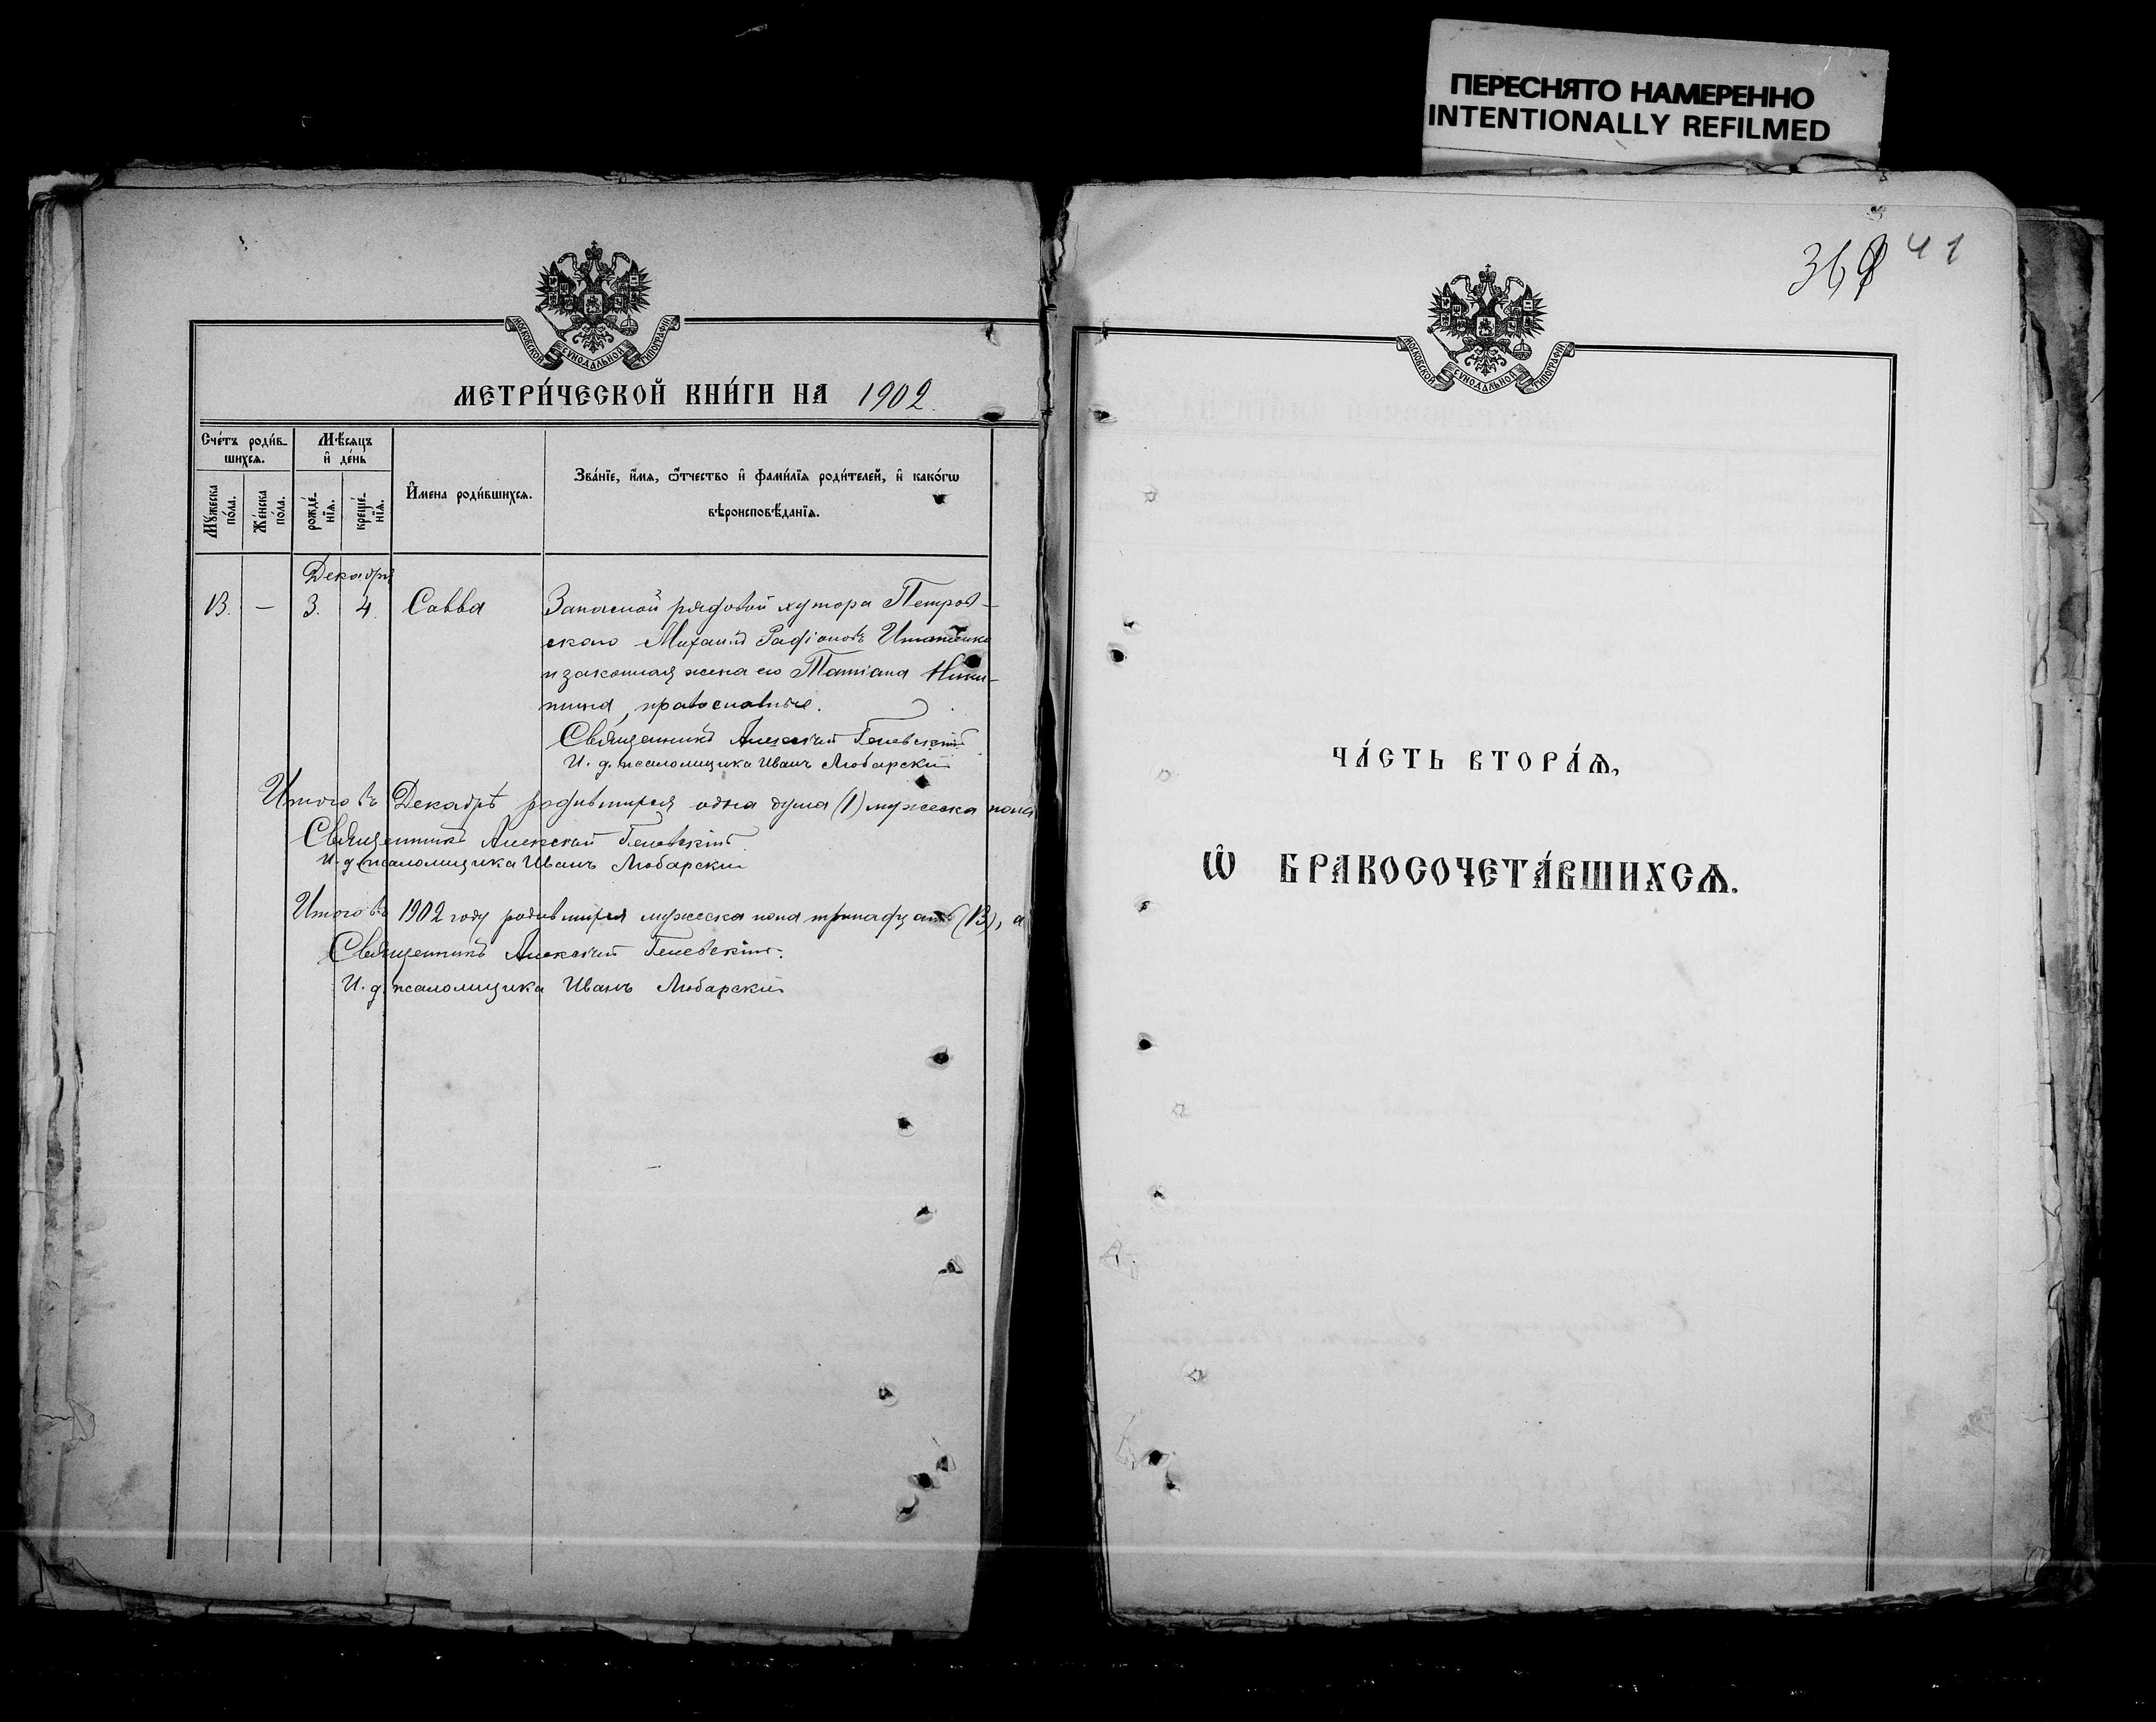 ПЕРЕСНЯТО НАМЕРЕННО
INTENTIONALLY REFILMED
МОСКОВСКОЙ СѴНОДАЛЬНОЙ ТИПОГРАФІИ
МЕТРИ́ЧЕСКОЙ КНИ́ГИ НА 1902.
Сче́тъ роди́в-
шихсѧ.
Мѣ́сѧцъ
и҆ де́нь
Мꙋжеска
по́ла.
Же́нска
по́ла.
рожде́-
нїѧ.
креще́-
нїѧ.
И҆мена роди́вшихсѧ.
Зва́нїе, и҆́мѧ, ѻ҆́тчество и҆ фами́лїѧ роди́телей, и҆ како́гѡ
вѣроисповѣ́данїѧ.
Декабрь
13. — 3. 4. Савва
Запасной рядовой хутора Петров-
скаго Михаилъ Радіоновъ
и законная жена его Татіана Ники-
тина, православные.
Священникъ Алексѣй
И. д. псаломщика Иванъ Любарскій
Итого въ Декабрѣ родившихся одна душа (1) мужеска пола
Священникъ Алексѣй
И. д. псаломщика Иванъ Любарскій
Итого въ 1902 году родившихся мужеска пола тринадцать (13), а
Священникъ Алексѣй
И. д. псаломщика Иванъ Любарскій
41
МОСКОВСКОЙ СѴНОДАЛЬНОЙ ТИПОГРАФІИ
ЧА́СТЬ ВТОРА́Ѧ,
Ѡ҆ БРАКОСОЧЕТА́ВШИХСѦ.